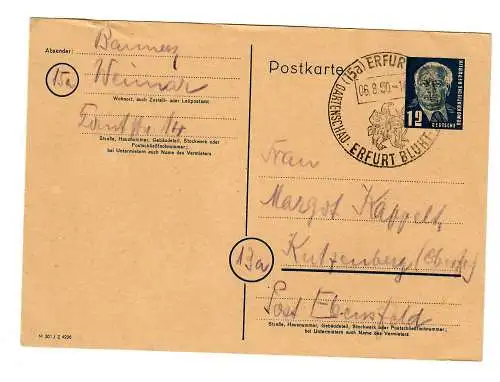 Absender:
Weimar
15a
Wohnort, auch Zustell- oder Leitpostamt
Straße, Hausnummer, Gebäudeteil, Stockwerk oder
Postschließfachnummer;
bei Untermietern auch Name des Vermieters
M 301 / Z 4206
Postkarte
(15a) ERFUR
06.8.50.-1
GARTENSCHAU
ERFURT BLÜHT
12
DEUTSCHE
DEMOKRATISCHE REPUBLIK
Frau
Margot Kappelt
13a
Kutzenberg
Post Ebensfeld
Straße, Hausnummer, Gebäudeteil, Stockwerk oder Postschließfachnummer;
bei Untermietern auch Name des Vermieters